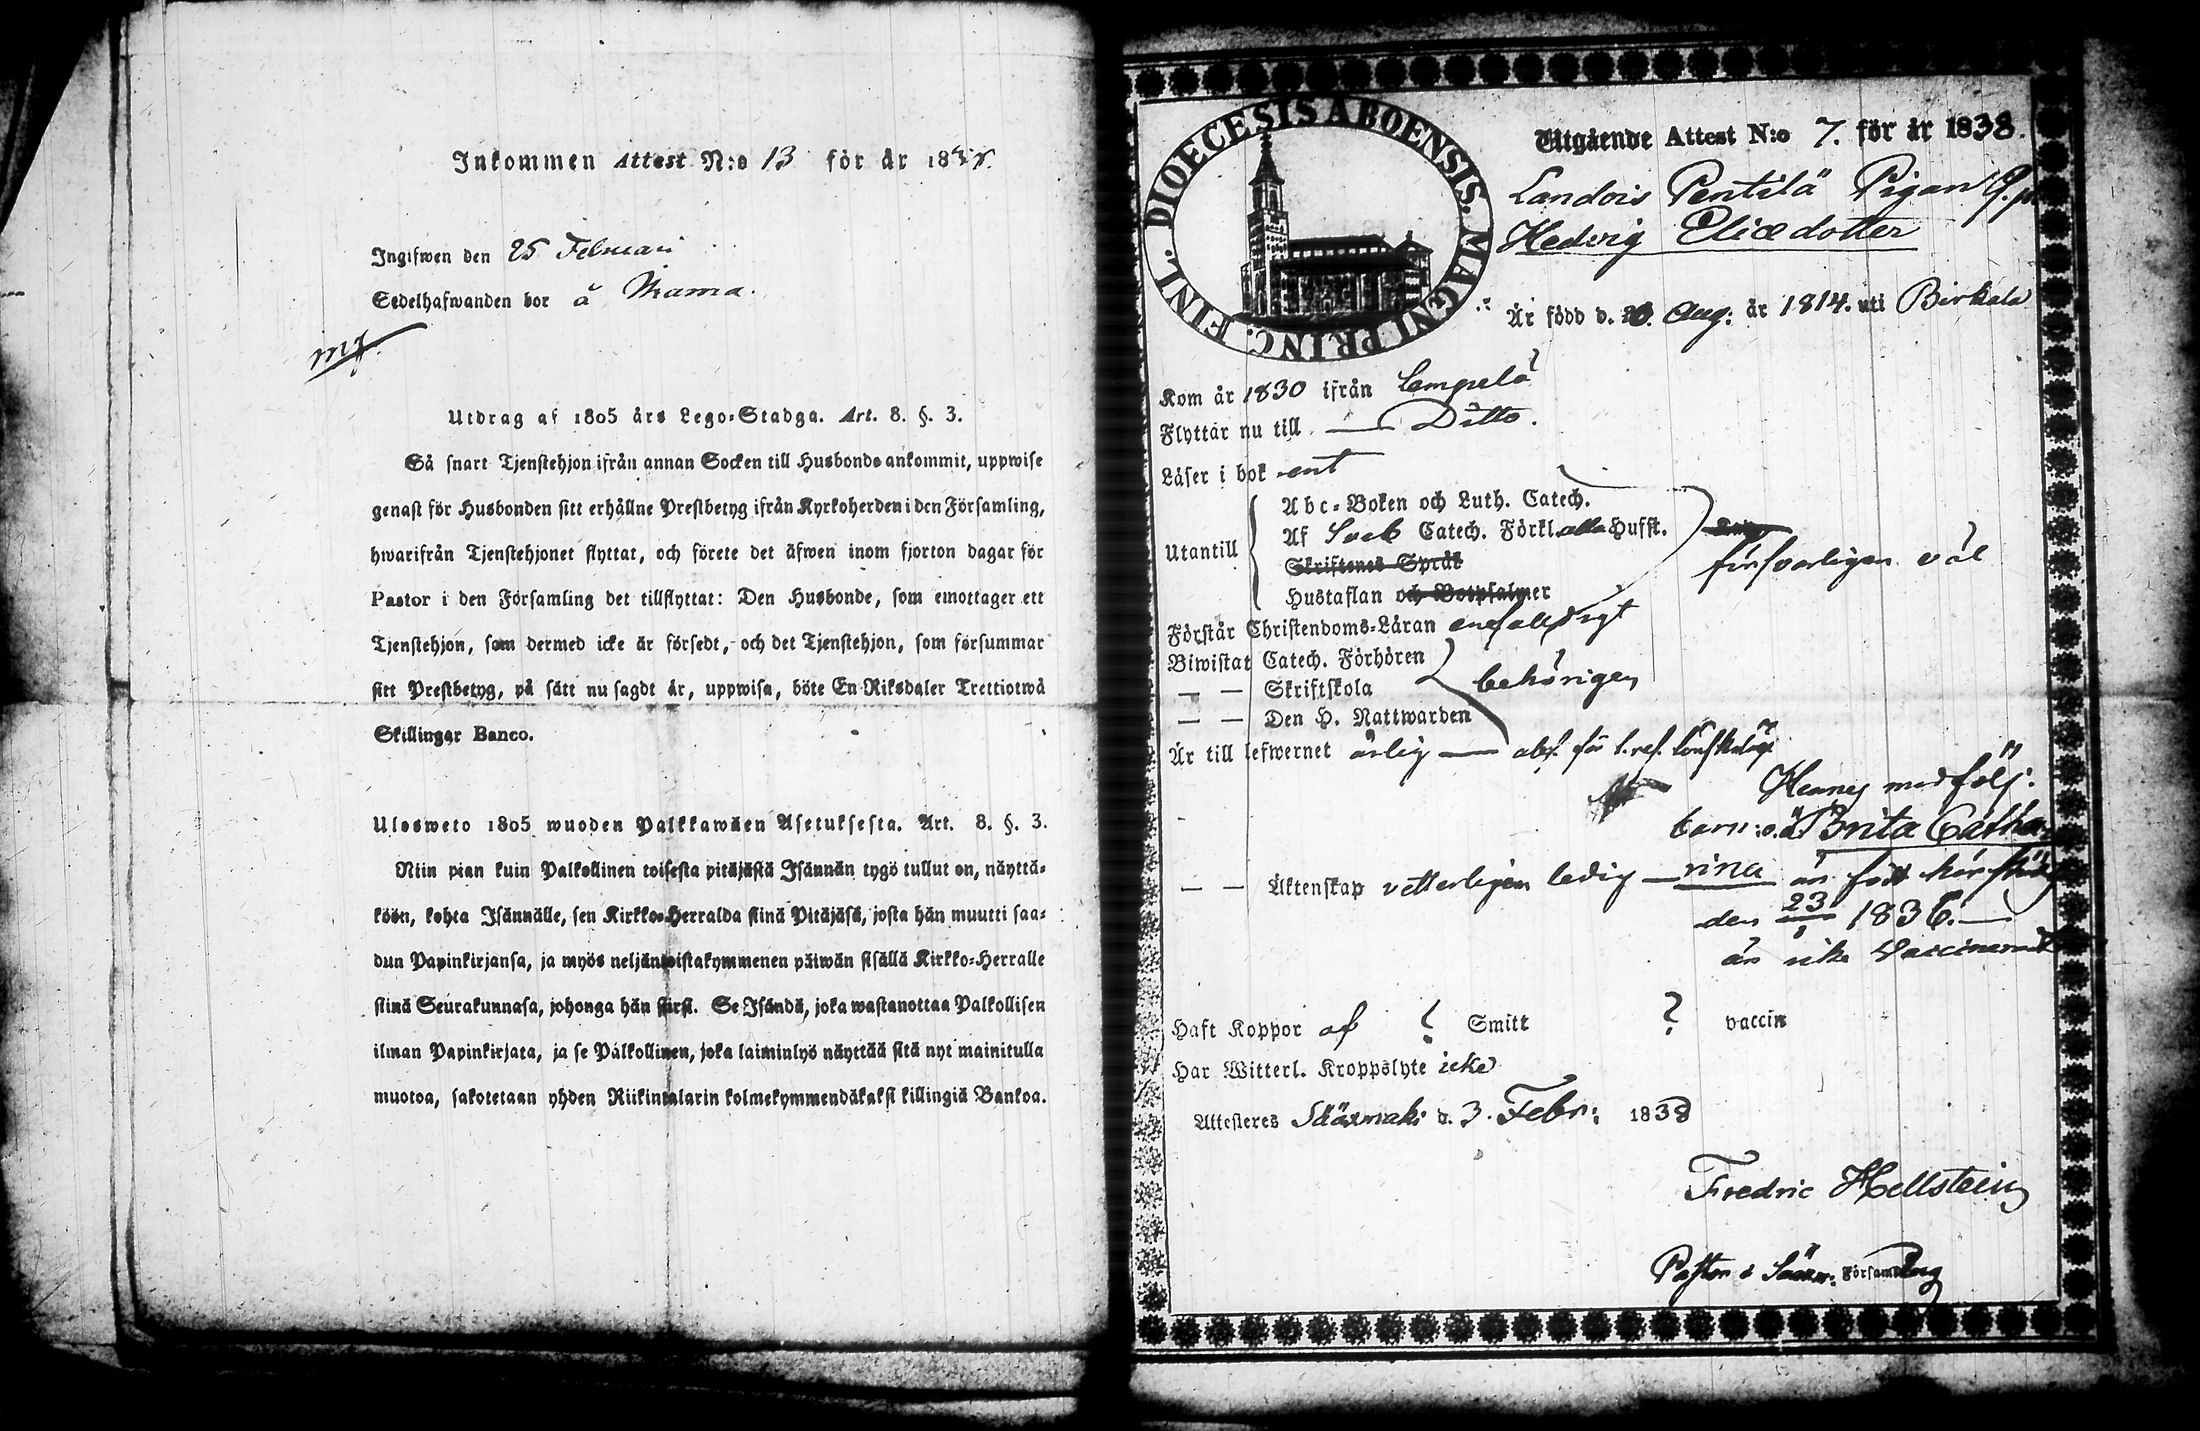 Inkommen Attest N:o 13 för år 1838.
Ingifwen den 25 Februari
Sedelhafwanden bor å
Utdrag af 1805 års Lego-Stadga. Art. 8. §. 3.
Så snart Tjenstehjon ifrån annan Socken till Husbonde ankommit, uppwise
genast för Husbonden sitt erhållne Prestbetyg ifrån Kyrkoherden i den Församling,
hwarifrån Tjenstehjonet flyttat, och förete det äfwen inom fjorton dagar för
Pastor i den Församling det tillflyttat: Den Husbonde, som emottager ett
Tjenstehjon, som dermed icke är försedt, och det Tjenstehjon, som försummar
sitt Prestbetyg, på sätt nu sagdt är, uppwisa, böte En Riksdaler Trettiotwå
Skillingar Banco.
Ulosweto 1805 wuoden Palkkawäen Asetuksesta. Art. 8. §. 3.
Niin pian kuin Palkollinen toisesta pitäjästä Isännän tygö tullut on, näyttä-
köön, kohta Isännälle, sen Kirkko-Herralda siinä Pitäjäsä, josta hän muutti saa-
dun Papinkirjansa, ja myös neljäntoistakymmenen päiwän sisällä Kirkko-Herralle
siinä Seurakunnasa, johonga hän siirsi. Se Isändä, joka wastanottaa Palkollisen
ilman Papinkirjata, ja se Palkollinen, joka laiminlyö näyttää sitä nyt mainitulla
muotoa, sakotetaan yhden Riikintalarin kolmekymmendäkaksi killingiä Bankoa.
DIOECESIS ABOENSIS. MAGNI PRINC. FINL.
Utgående Attest N:o 7. för år 1838.
Landois Pentilä Pigan
Hedvig Eliædotter
Är född d. Aug: år 1814. uti Birkala
Kom år 1830 ifrån Lempelä
Flyttar nu till — Ditto.
Läser i bok ent
Utantill
Abc-Boken och Luth. Catech.
Af Sveb Catech. Förkl. alla Hufst.
Skriftenes Språk
Hustaflan och Botpsalmer
försvarligen väl
Förstår Christendoms-Läran enfalldigt
Biwistat Catech. Förhören
— — Skriftskola
— — Den H. Nattwarden
behörigen
Är till lefwernet ärlig — abs. för 1. res. lönskaläge
Hennes medfölj:
barn: o.ä. Brita Catha-
— — Äktenskap vetterligen ledig — rina är född här städes
den 23/8 1836. —
är icke Vaccinerad
Haft Koppor af ? Smitt ? vaccin
Har Witterl. Kroppslyte icke
Attesteres Sääxmäki d. 3. Febr: 1838
Fredric Hellstein
Pastor i Sääxm: Församling